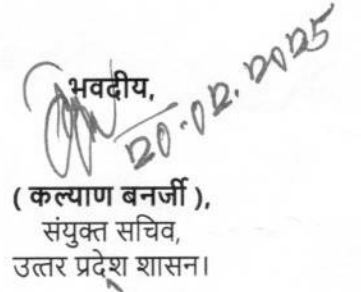 भवदीय,
20.02.2025
( कल्याण बनर्जी ),
संयुक्त सचिव,
उत्तर प्रदेश शासन।